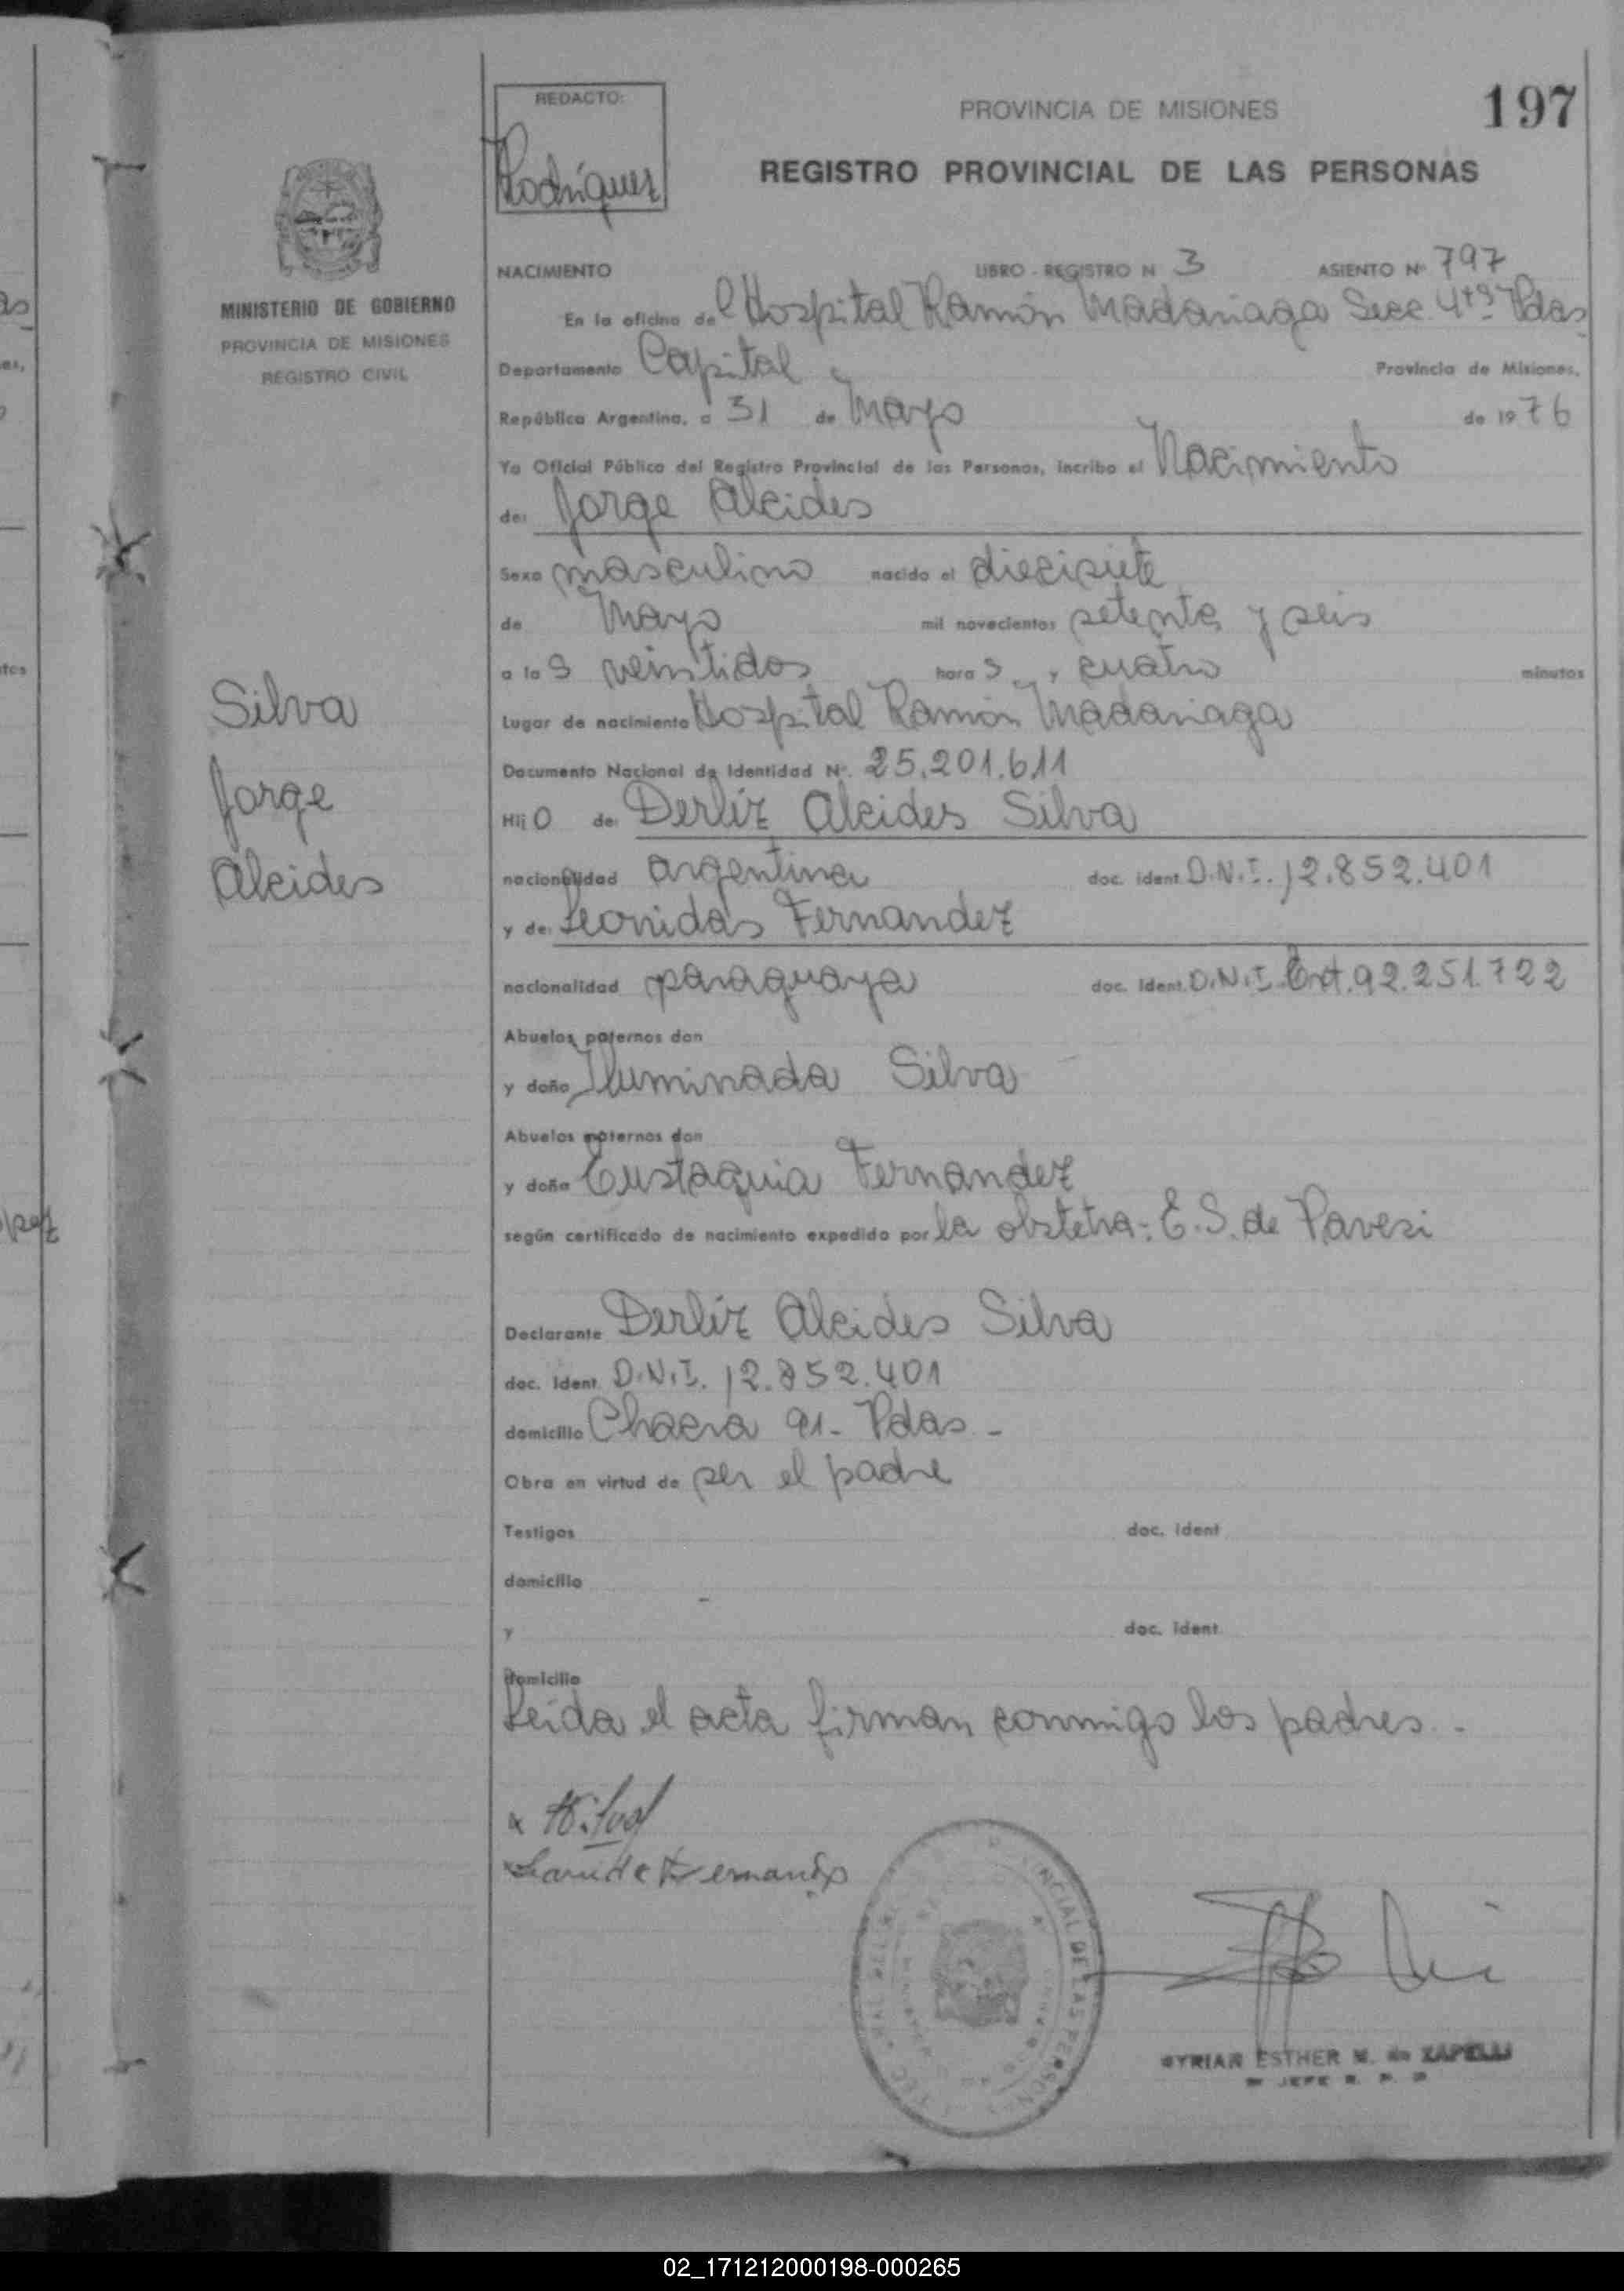 REDACTO:
Rodríguez
PROVINCIA DE MISIONES
197
REGISTRO PROVINCIAL DE LAS PERSONAS
MINISTERIO DE GOBIERNO
PROVINCIA DE MISIONES
REGISTRO CIVIL
NACIMIENTO LIBRO - REGISTRO N 3 ASIENTO Nº 797
En la oficina del Hospital Ramón Madariaga Secc. 4ta Pdas
Departamento Capital Provincia de Misiones,
República Argentina, a 31 de Mayo de 1976
Yo Oficial Público del Registro Provincial de las Personas, incribo el Nacimiento
de: Jorge Alcides
Sexo masculino nacido el diecisiete
de Mayo mil novecientos setenta y seis
a las veintidos horas y cuatro minutos
Lugar de nacimiento Hospital Ramón Madariaga
Documento Nacional de Identidad Nº. 25.201.611
Hijo de: Derliz Alcides Silva
nacionalidad argentina doc. ident. D.N.I. 12.852.401
y de: Leonidas Fernandez
nacionalidad paraguaya doc. ident. D.N.I. Ext. 92.251.722
Abuelos paternos don
y doña Iluminada Silva
Abuelos maternos don
y doña Eustaquia Fernandez
según certificado de nacimiento expedido por la obstetra: E.S. de Pavesi
Declarante Derliz Alcides Silva
doc. ident. D.N.I. 12.852.401
domicilio Chacra 91- Pdas -
Obra en virtud de ser el padre
Testigos doc. ident
domicilio
y doc. ident.
domicilio
Leida el acta firman conmigo los padres.-
Silva
Jorge
Alcides
ESTHER M. de ZAPELLI
JEFE
02_171212000198-000265